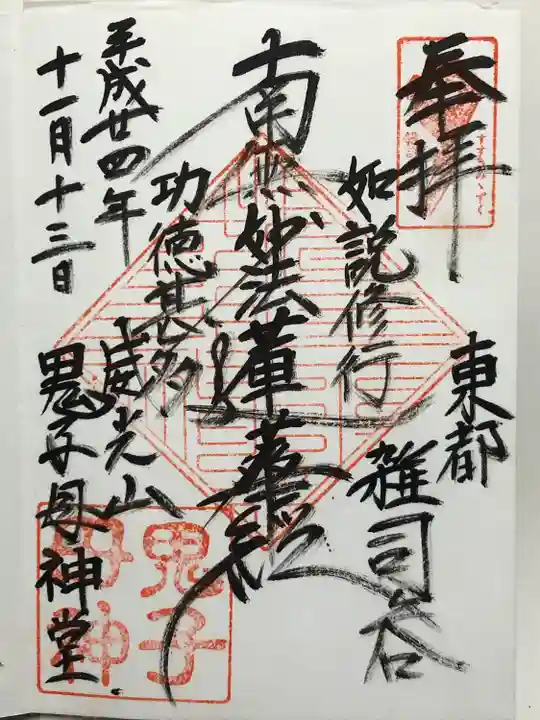 奉拝
東都
雑司谷
如説修行
南無妙法蓮華経
功徳甚多
威光山
鬼子母神堂
平成廿四年
十一月十三日
すすきみゝずく
鬼子
母神